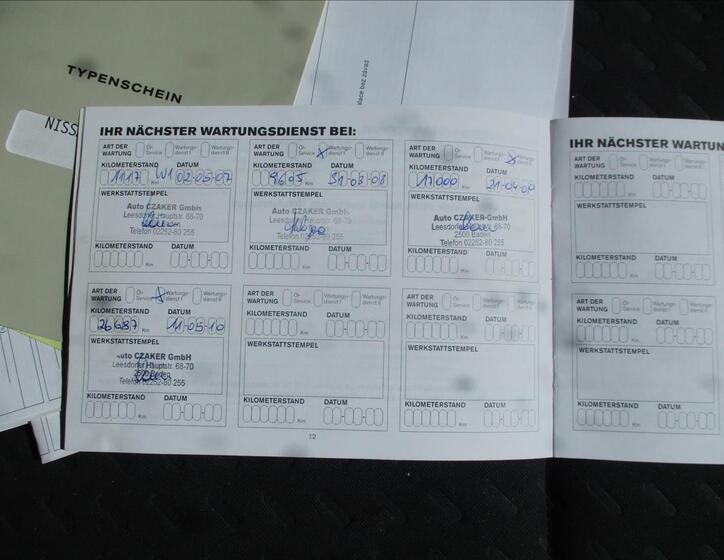 TYPENSCHEIN
NISS
IHR NÄCHSTER WARTUNGSDIENST BEI:
ART DER WARTUNG Öl-Service Wartungsdienst I Wartungsdienst II
KILOMETERSTAND DATUM
1117 Km W1 02-05-07
WERKSTATTSTEMPEL
Auto CZAKER GmbH
Leesdorfer Hauptstr. 68-70
Telefon 02252-80 255
KILOMETERSTAND DATUM
Km
ART DER WARTUNG Öl-Service Wartungsdienst I Wartungsdienst II
KILOMETERSTAND DATUM
9695 Km 31-03-08
WERKSTATTSTEMPEL
Auto CZAKER GmbH
Leesdorfer Hauptstr. 68-70
Telefon 02252-80 255
KILOMETERSTAND DATUM
Km
ART DER WARTUNG Öl-Service Wartungsdienst I Wartungsdienst II
KILOMETERSTAND DATUM
17000 Km 21-04-09
WERKSTATTSTEMPEL
Auto CZAKER GmbH
Leesdorfer Hauptstr. 68-70
2500 Baden
Telefon 02252-80 255
KILOMETERSTAND DATUM
Km
ART DER WARTUNG Öl-Service Wartungsdienst I Wartungsdienst II
KILOMETERSTAND DATUM
26687 Km 11-05-10
WERKSTATTSTEMPEL
Auto CZAKER GmbH
Leesdorfer Hauptstr. 68-70
2500 Baden
Telefon 02252-80 255
KILOMETERSTAND DATUM
Km
ART DER WARTUNG Öl-Service Wartungsdienst I Wartungsdienst II
KILOMETERSTAND DATUM
Km
WERKSTATTSTEMPEL
KILOMETERSTAND DATUM
Km
ART DER WARTUNG Öl-Service Wartungsdienst I Wartungsdienst II
KILOMETERSTAND DATUM
Km
WERKSTATTSTEMPEL
KILOMETERSTAND DATUM
Km
12
IHR NÄCHSTER WARTUN
ART DER WARTUNG Öl-Service Wartungsdienst I
KILOMETERSTAND DATUM
Km
WERKSTATTSTEMPEL
KILOMETERSTAND DATUM
Km
ART DER WARTUNG Öl-Service Wartungsdienst I
KILOMETERSTAND DATUM
Km
WERKSTATTSTEMPEL
KILOMETERSTAND DATUM
Km